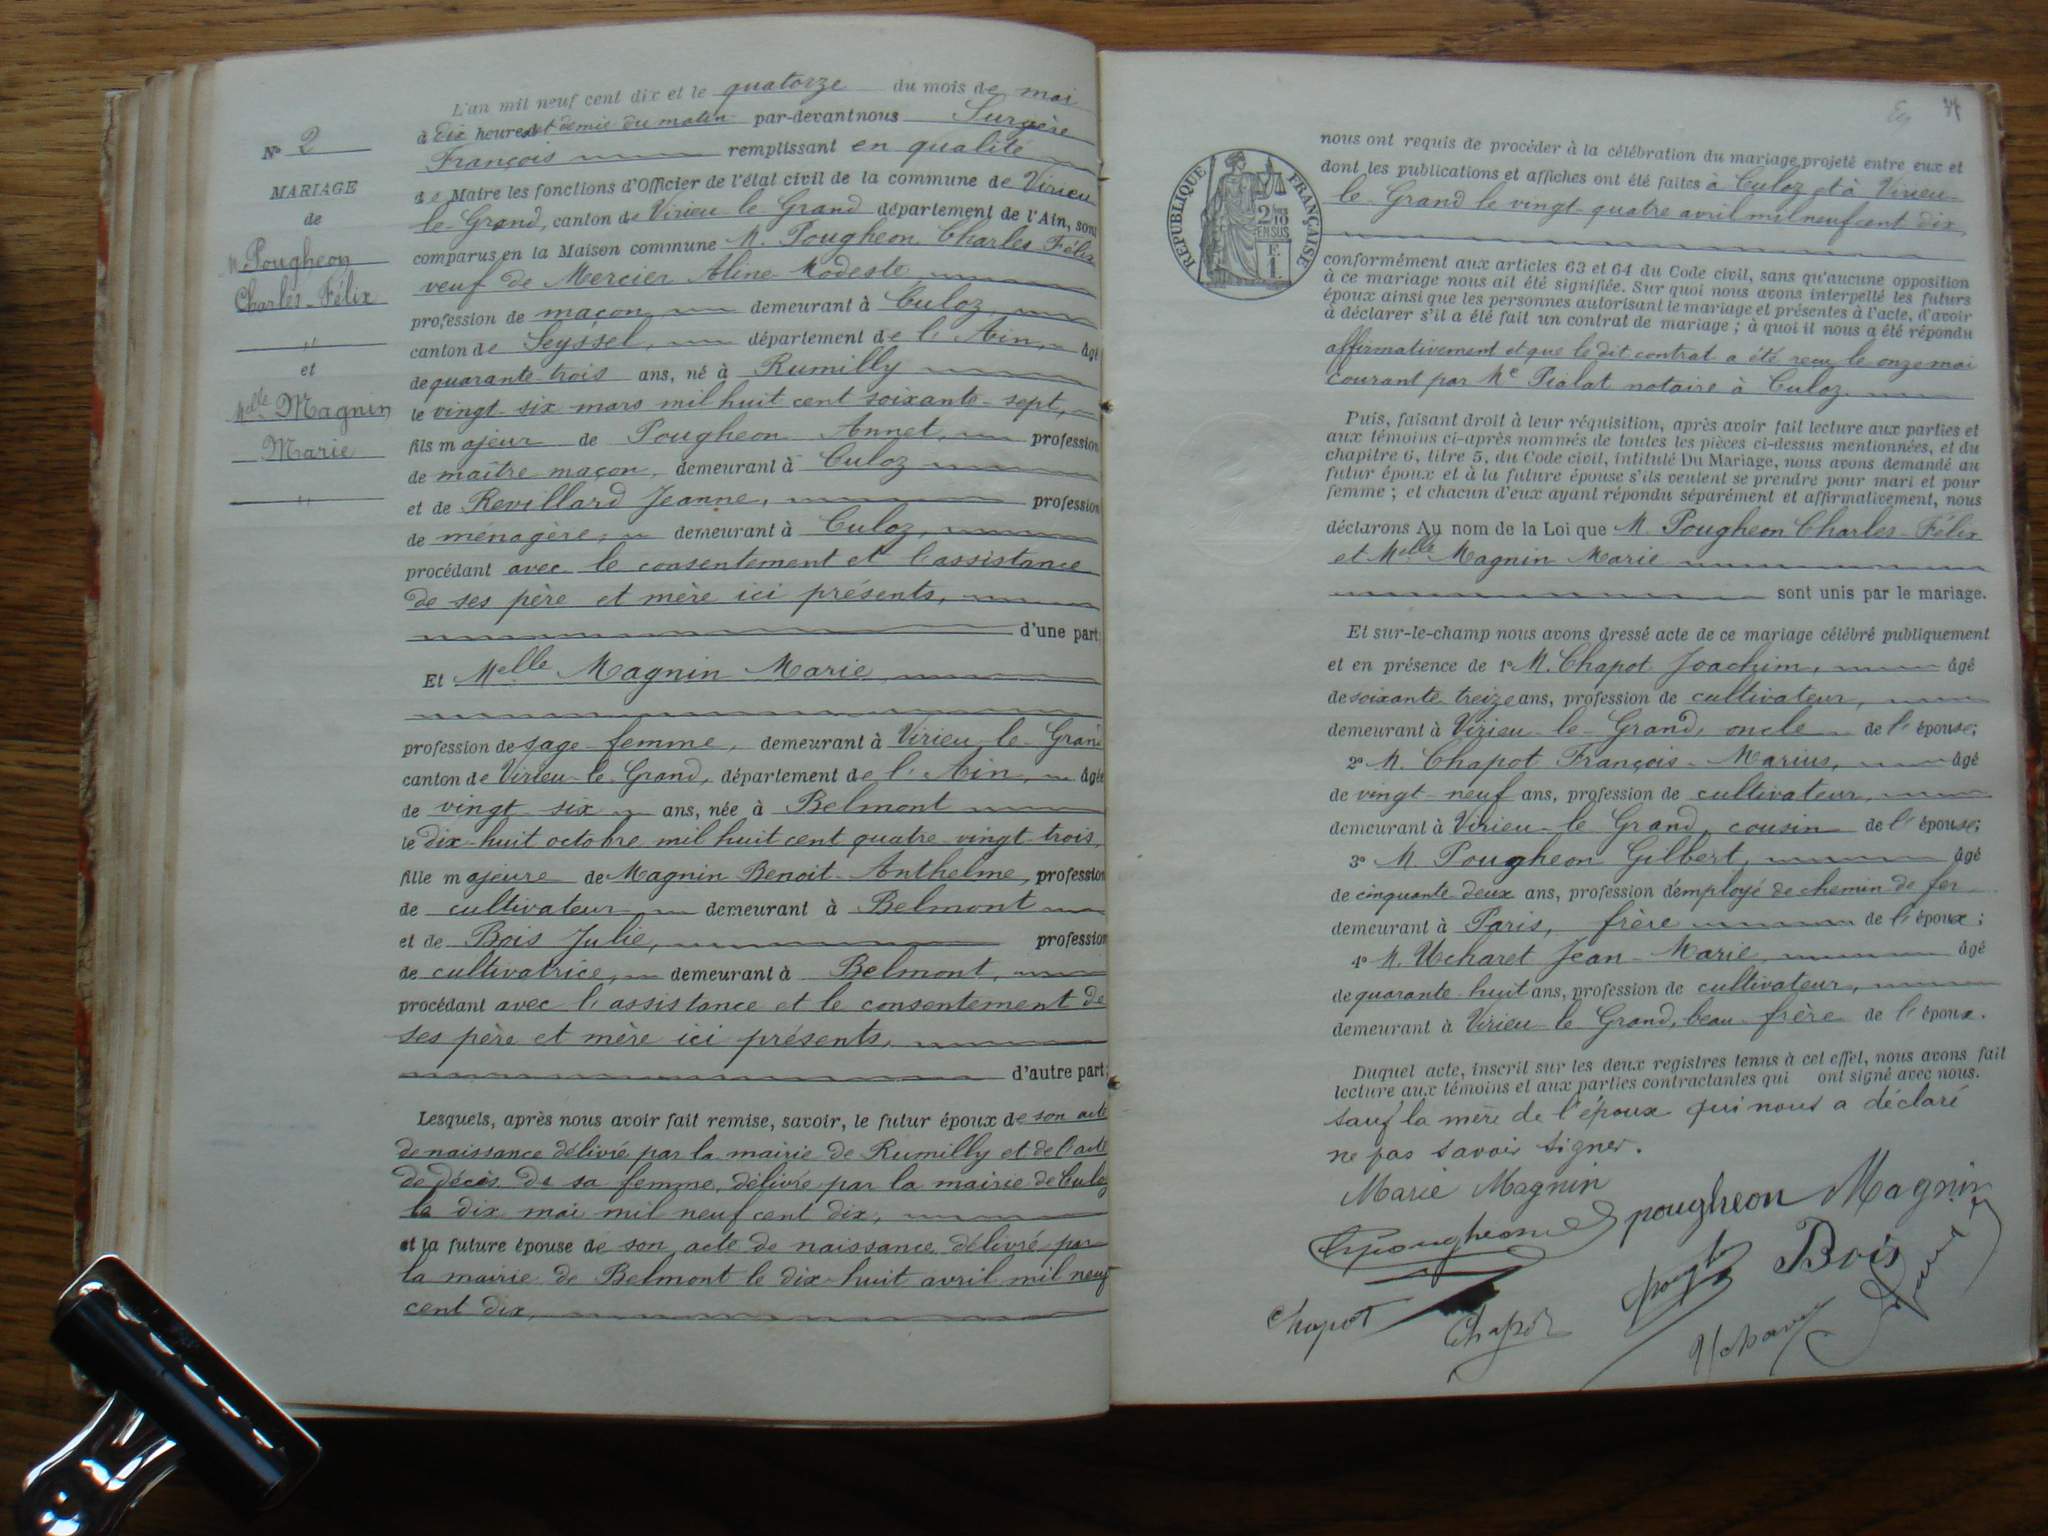 L'an mil neuf cent dix et le quatorze du mois de mai
à dix heures et demie du matin par-devant nous Surgère
François remplissant en qualité
de Maire les fonctions d'Officier de l'état civil de la commune de Virieu
le Grand, canton de Virieu le Grand département de l'Ain, sont
comparus en la Maison commune M. Pougheon Charles Félix
veuf de Mercier Aline Modeste
profession de maçon demeurant à Culoz
canton de Seyssel, département de l'Ain, âgé
de quarante-trois ans, né à Rumilly
le vingt-six mars mil huit cent soixante-sept,
fils majeur de Pougheon Annet, profession
de maître maçon, demeurant à Culoz
et de Revillard Jeanne, profession
de ménagère, demeurant à Culoz,
procédant avec le consentement et l'assistance
de ses père et mère ici présents,
d'une part;
Et Melle Magnin Marie
profession de sage-femme, demeurant à Virieu-le-Grand
canton de Virieu-le-Grand, département de l'Ain, âgée
de vingt-six ans, née à Belmont
le dix-huit octobre mil huit cent quatre-vingt-trois,
fille majeure de Magnin Benoit-Anthelme, profession
de cultivateur demeurant à Belmont
et de Bois Julie, profession
de cultivatrice, demeurant à Belmont,
procédant avec l'assistance et le consentement de
ses père et mère ici présents,
d'autre part;
Lesquels, après nous avoir fait remise, savoir, le futur époux de son acte
de naissance délivré par la mairie de Rumilly et de l'acte
de décès de sa femme, délivré par la mairie de Culoz
le dix mai mil neuf cent dix,
et la future épouse de son acte de naissance délivré par
la mairie de Belmont le dix-huit avril mil neuf
cent dix,
No 2
MARIAGE
de
M. Pougheon
Charles-Félix
"
et
Melle Magnin
Marie
"
RÉPUBLIQUE FRANÇAISE
2/10 EN SUS
F. 1.
nous ont requis de procéder à la célébration du mariage projeté entre eux et
dont les publications et affiches ont été faites à Culoz et à Virieu-
le-Grand le vingt-quatre avril mil neuf cent dix
conformément aux articles 63 et 64 du Code civil, sans qu'aucune opposition
à ce mariage nous ait été signifiée. Sur quoi nous avons interpellé les futurs
époux ainsi que les personnes autorisant le mariage et présentes à l'acte, d'avoir
à déclarer s'il a été fait un contrat de mariage ; à quoi il nous a été répondu
affirmativement et que le dit contrat a été reçu le onze mai
courant par Me Pialat notaire à Culoz
Puis, faisant droit à leur réquisition, après avoir fait lecture aux parties et
aux témoins ci-après nommés de toutes les pièces ci-dessus mentionnées, et du
chapitre 6, titre 5, du Code civil, intitulé Du Mariage, nous avons demandé au
futur époux et à la future épouse s'ils veulent se prendre pour mari et pour
femme ; et chacun d'eux ayant répondu séparément et affirmativement, nous
déclarons Au nom de la Loi que M. Pougheon Charles-Félix
et Melle Magnin Marie
sont unis par le mariage.
Et sur-le-champ nous avons dressé acte de ce mariage célébré publiquement
et en présence de 1o M. Chapot Joachim, âgé
de soixante treize ans, profession de cultivateur,
demeurant à Virieu-le-Grand, oncle de l'épouse;
2o M. Chapot François-Marius, âgé
de vingt-neuf ans, profession de cultivateur,
demeurant à Virieu-le-Grand, cousin de l'épouse;
3o M. Pougheon Gilbert, âgé
de cinquante-deux ans, profession d'employé de chemin de fer
demeurant à Paris, frère de l'époux;
4o M. Ucharet Jean-Marie, âgé
de quarante-huit ans, profession de cultivateur,
demeurant à Virieu le Grand, beau-frère de l'époux.
Duquel acte, inscrit sur les deux registres tenus à cet effet, nous avons fait
lecture aux témoins et aux parties contractantes qui ont signé avec nous.
sauf la mère de l'époux qui nous a déclaré
ne pas savoir signer.
Marie Magnin
pougheon Magnin
Bois
Chapot Chapot